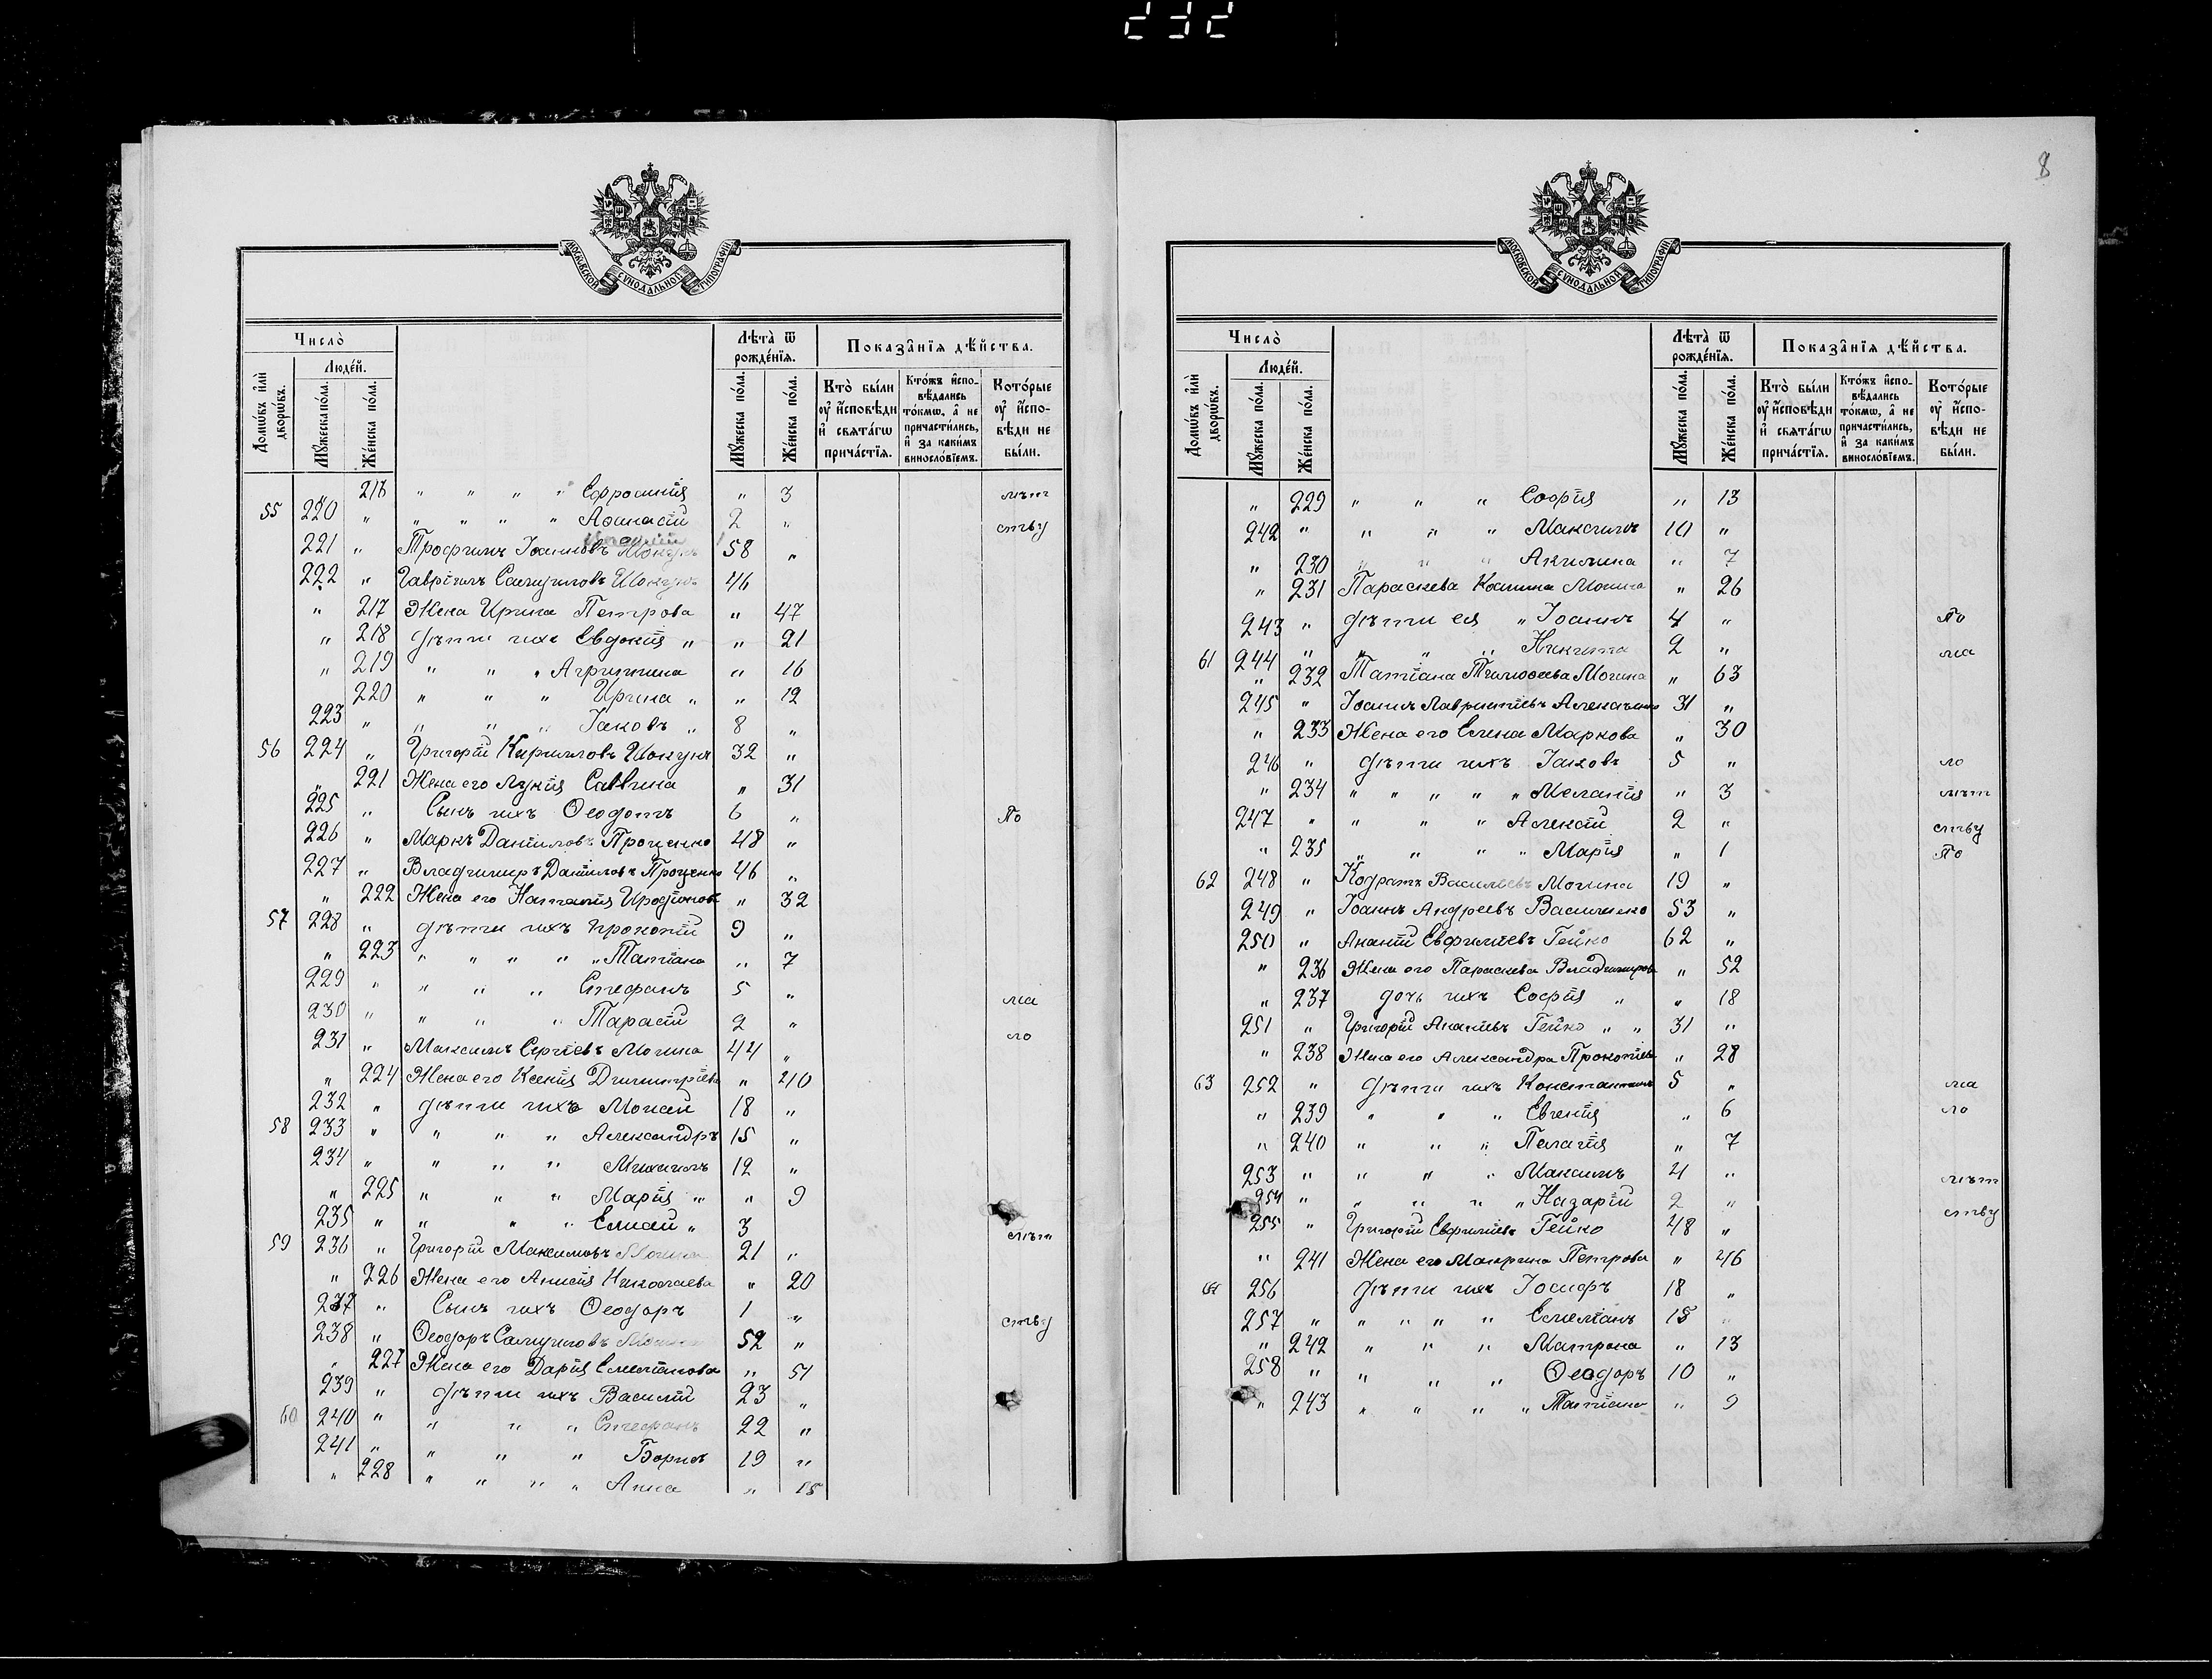 232
МОСКОВСКОЙ СУНОДАЛЬНОЙ ТИПОГРАФІИ
Число̀
Люде́й.
Домѡ́въ и҆лѝ дворѡ́въ.
Мꙋ́жеска по́ла.
Же́нска по́ла.
Лѣ́та ѿ рожде́нїѧ.
Мꙋ́жеска по́ла.
Же́нска по́ла.
Показа̑нїѧ дѣ́йства.
Кто̀ бы́ли ᲂу҆ и҆сповѣ́ди и҆ свѧта́гѡ прича́стїѧ.
Кто́жъ и҆спо꙳вѣ́дались то́кмѡ, а҆ не причасти́лись, и҆ за каки́мъ виносло́вїемъ.
Кото́рые ᲂу҆ и҆спо-вѣ́ди не бы́ли.
216 " " " " Єфросинія " 3 лѣт
55 220 " " " " " Афанасій 2 " ству
221 " Трофимъ Іоанновъ 58 "
222 " Гавріилъ Самуиловъ Шокунъ 46
" 217 Жена Ирина Петрова " 47
" 218 дѣти ихъ Евдокія " " 21
" 219 " " " Агрипина " 16
" 220 " " " Ирина " " 12
223 " " " " Іаковъ " 8 "
56 224 " Григорій Кирилловъ Шокунъ 32 "
" 221 Жена его Лукія Саввина " 31
225 " Сынъ ихъ Ѳеодотъ 6 " По
226 " Маркъ Даніиловъ Проценко 48 "
227 " Владимиръ Даніиловъ Проценко 46 "
" 222 Жена его Наталія Иродіонова " 32
57 228 " дѣти ихъ Прокопій 9 "
" 223 " " " " " Татіана " 7
229 " " " " Стефанъ 5 "
230 " " " " Тарасій 2 " ма
231 " Максимъ Сергіевъ Могила 44 " ло
" 224 Жена его Ксенія Димитріева " 40
232 " дѣти ихъ Моисей 18 "
58 233 " " " " Александръ 15 "
234 " " " " Михаилъ 12 "
" 225 " " " Марія " " 9
235 " " " " Елисей " 3
59 236 " Григорій Максимовъ Могила 21 " лѣт
" 226 Жена его Анисія Николаева " 20
237 " Сынъ ихъ Ѳеодоръ 1 "
238 " Ѳеодоръ Самуиловъ Могила 52 " ству
" 227 Жена его Дарія Емеліанова " 51
239 " дѣти ихъ Василій 23 "
60 240 " " " " Стефанъ 22 "
241 " " " " Борисъ 19 "
" 228 " " " " Анна " 15
8
МОСКОВСКОЙ СУНОДАЛЬНОЙ ТИПОГРАФІИ
Число̀
Люде́й.
Домѡ́въ и҆лѝ дворѡ́въ.
Мꙋ́жеска по́ла.
Же́нска по́ла.
Лѣ́та ѿ рожде́нїѧ.
Мꙋ́жеска по́ла.
Же́нска по́ла.
Показа̑нїѧ дѣ́йства.
Кто̀ бы́ли ᲂу҆ и҆сповѣ́ди и҆ свѧта́гѡ прича́стїѧ.
Кто́жъ и҆спо-вѣ́дались то́кмѡ, а҆ не причасти́лись, и҆ за каки́мъ виносло́вїемъ.
Кото́рые ᲂу҆ и҆спо-вѣ́ди не бы́ли.
" 229 " " " Софія " 13
242 " " " " Максимъ 10 "
" 230 " " " Акилина " 7
" 231 Параскева Могила " 26
243 " дѣти ея " Іоаннъ 4 " По
61 244 " " " " Никита 2 " ма
" 232 Татіана Тимоѳеева Могила " 63
245 " Іоаннъ Лаврентіевъ 31 "
" 233 Жена его Елена Маркова " 30
246 " дѣти ихъ Іаковъ 5 " ло
" 234 " " " " " Меланія " 3 лѣт
247 " " " " Алексій 2 " ству
" 235 " " " Марія " 1 По
62 248 " Кодратъ Васильевъ Могила 19 "
249 " Іоаннъ Андреевъ Василенко 53 "
250 " Ананій Евфиміевъ Гейко 62 "
" 236 Жена его Параскева Владимирова " 52
" 237 дочь ихъ Софія " " 18
251 " Григорій Ананіевъ Гейко " " 31 "
" 238 Жена его Александра Прокопіева " 28
63 252 " дѣти ихъ Константинъ 5 " ма
" 239 " " " Евгенія " 6 ло
" 240 " " " Пелагія " 7
253 " " " " Максимъ 4 " лѣт
254 " " " " " Назарій 2 " ству
255 " Григорій Евфиміевъ Гейко 48 "
" 241 Жена его Макрина Петрова " 46
64 256 дѣти ихъ Іосифъ 18 "
257 " " " " " Емеліанъ 15 "
" 242 " " " Матрона " 13
258 " " " " Ѳеодоръ 10 "
" 243 " " " " Татіана " 9